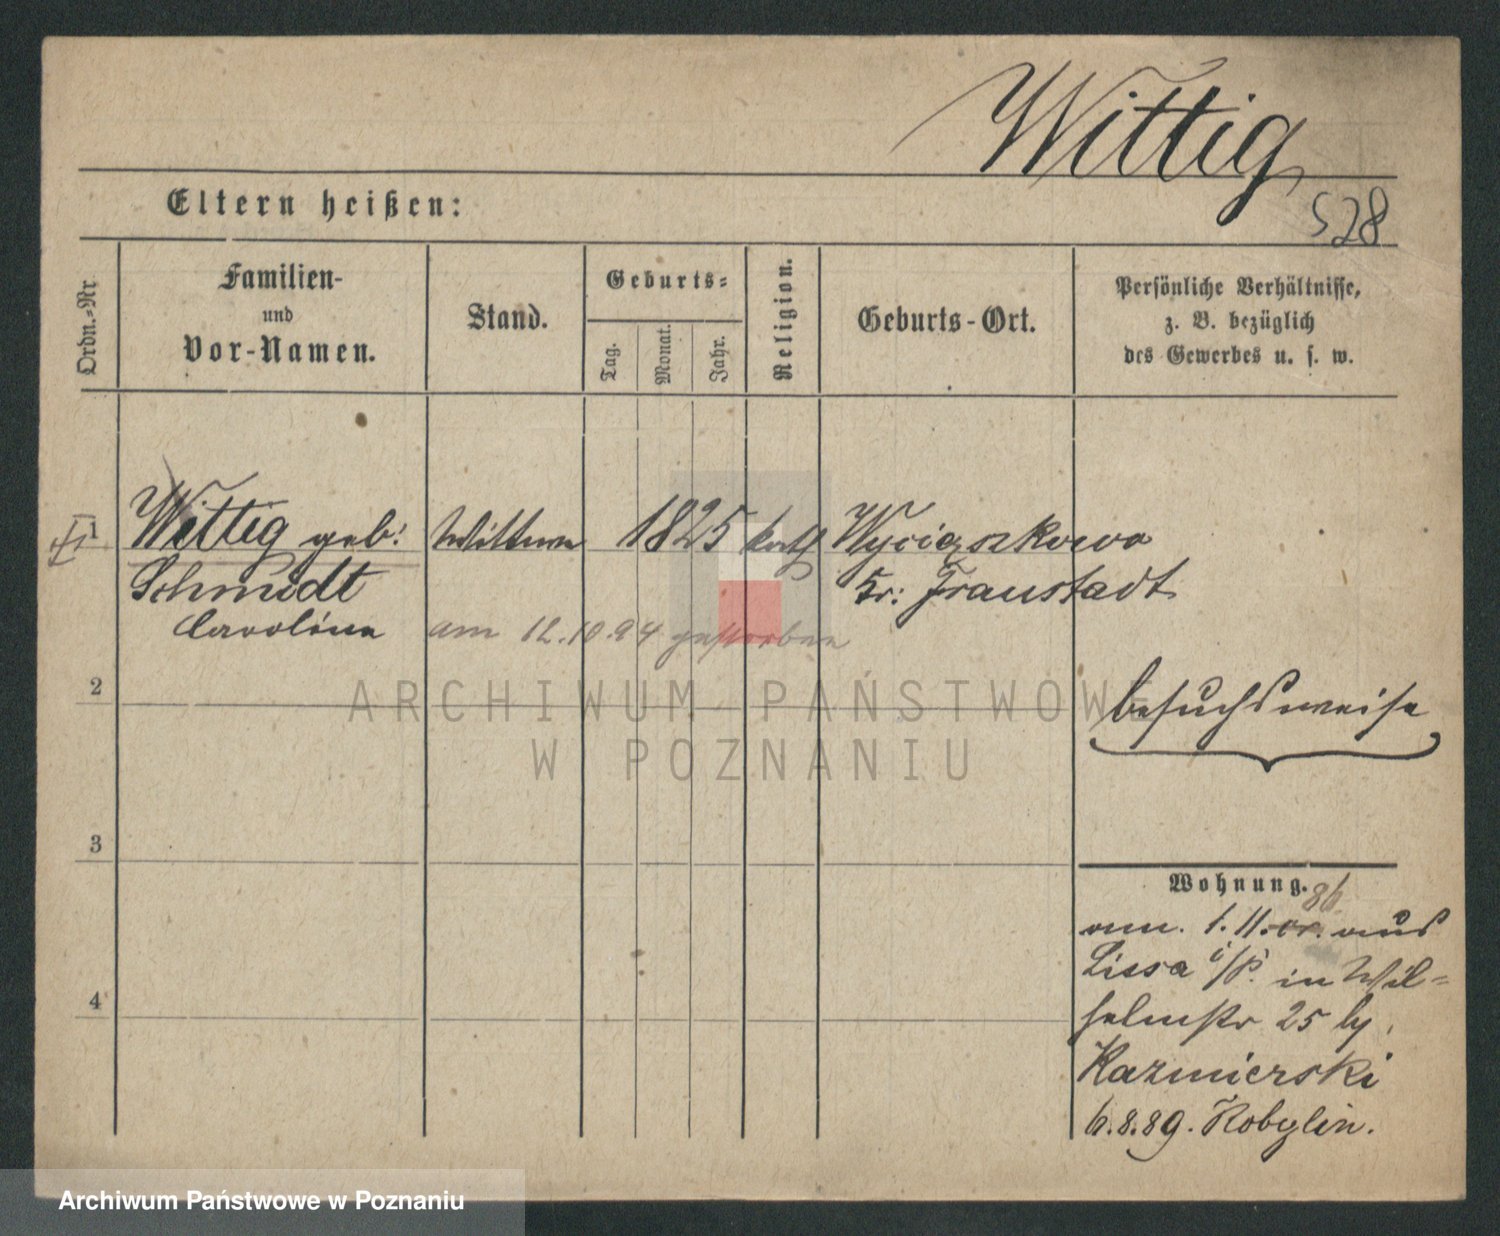 Wittig
528
Eltern heißen:
Ordn.-Nr.
Familien-
und
Vor-Namen.
Stand.
Geburts-
Tag.
Monat.
Jahr.
Religion.
Geburts-Ort.
Persönliche Verhältnisse,
z. B. bezüglich
des Gewerbes u. s. w.
1
Wittig geb:
Schmidt
Caroline
Wittwe
1825
kath
Wyciązkowo
Kr: Fraustadt
am 12.10.94 gestorben
2
besuchsweise
3
4
Wohnung.
86
am. 1.11. cr. aus
Lissa i/P. in Wil-
helmstr 25 by
Kazmierski
6.8.89. Kobylin.
ARCHIWUM PAŃSTWOWE
W POZNANIU
Archiwum Państwowe w Poznaniu